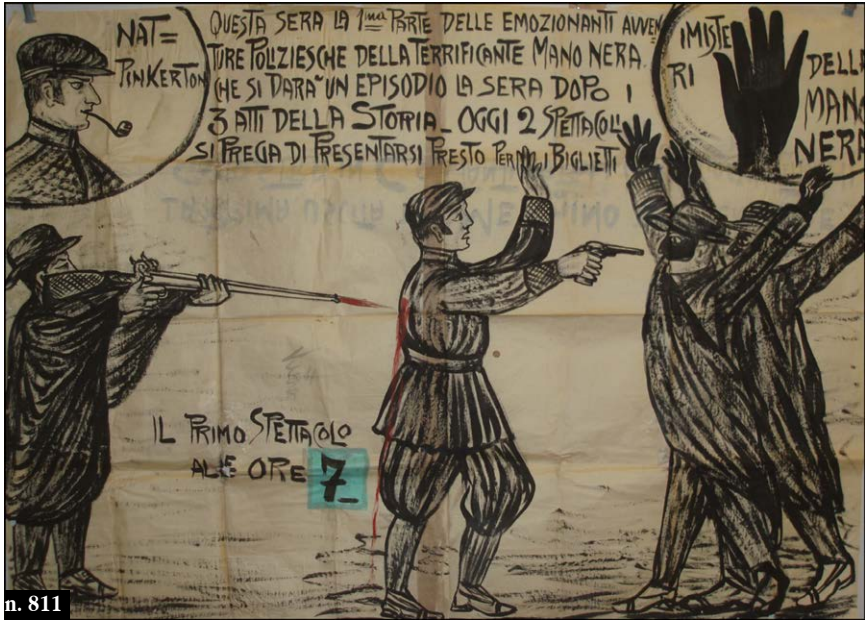 NAT=
PINKERTON
QUESTA SERA LA 1ma PARTE DELLE EMOZIONANTI AVVEN
TURE POLIZIESCHE DELLA TERRIFICANTE MANO NERA.
CHE SI DARA UN EPISODIO LA SERA DOPO I
3 ATTI DELLA STORIA_ OGGI 2 SPETTACOLI
SI PREGA DI PRESENTARSI PRESTO PER I BIGLIETTI
I MISTE
RI
DELLA
MANO
NERA
IL PRIMO SPETTACOLO
ALLE ORE 7_
n. 811